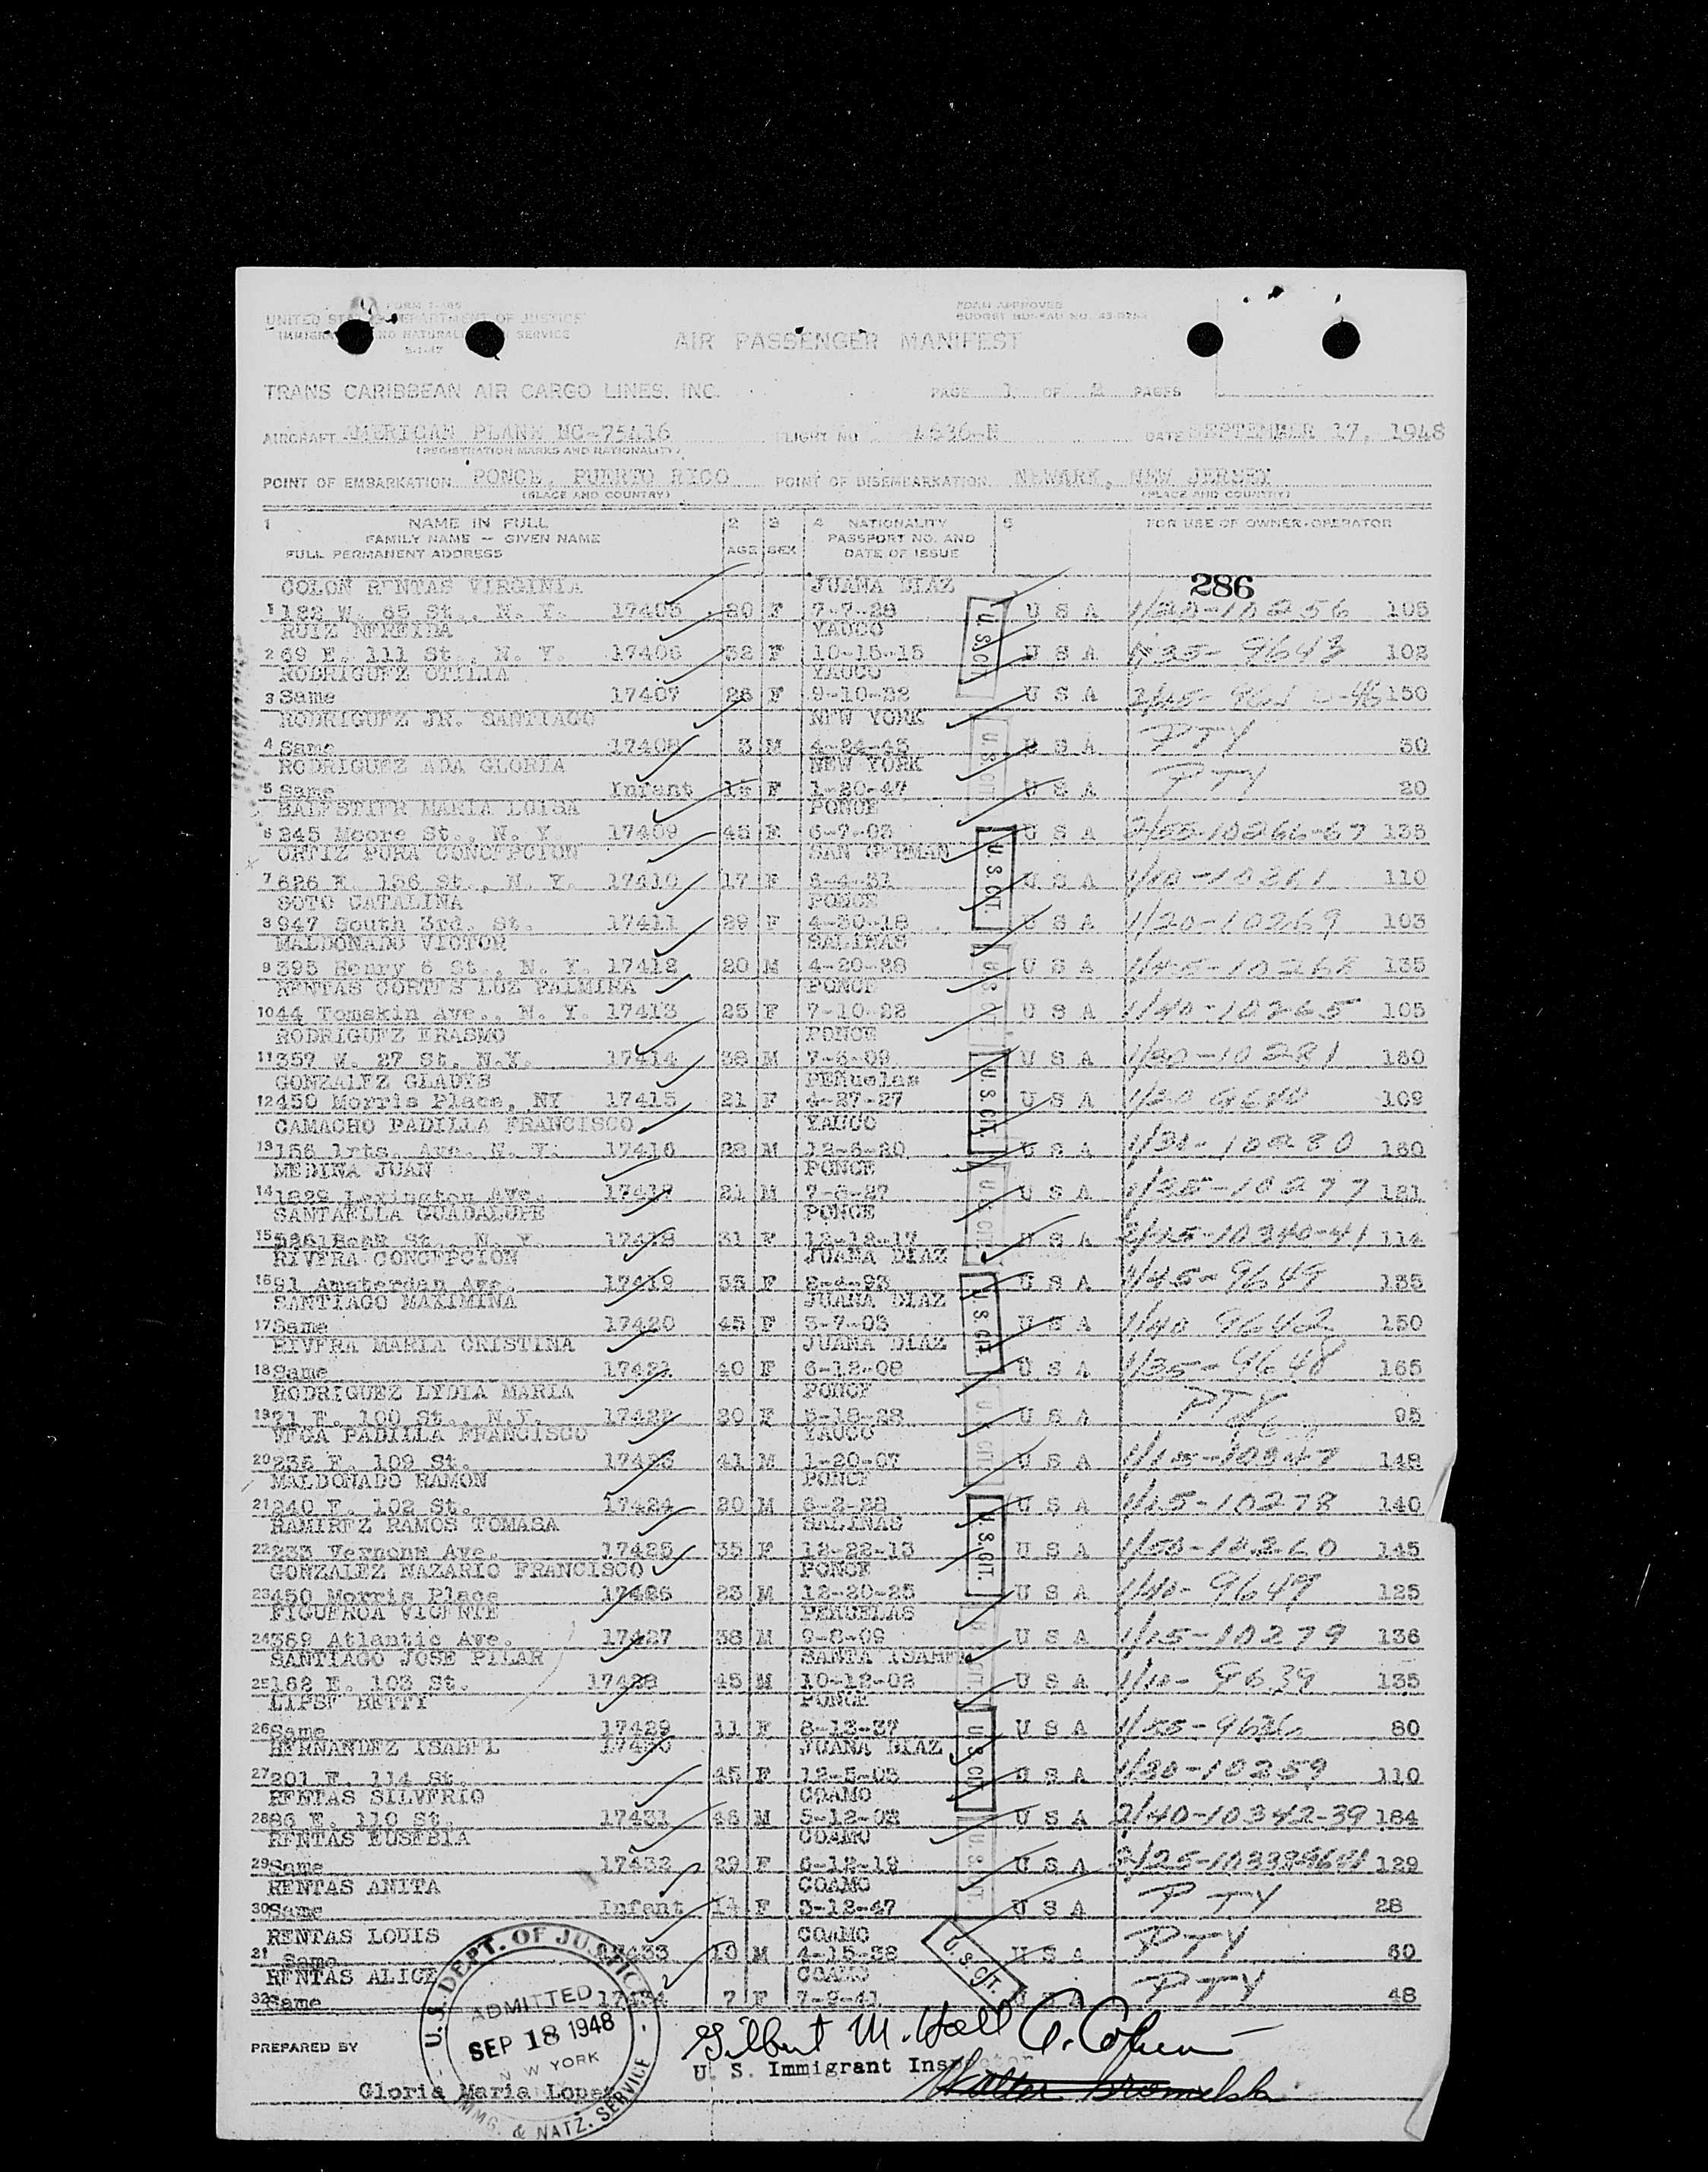 FORM I-466
UNITED STATES DEPARTMENT OF JUSTICE
IMMIGRATION AND NATURALIZATION SERVICE
FORM APPROVED
BUDGET BUREAU NO.
AIR PASSENGER MANIFEST
TRANS CARIBBEAN AIR CARGO LINES, INC. PAGE 1 OF 2 PAGES
AIRCRAFT AMERICAN PLANE NC-75416 FLIGHT NO 4636-N DATE SEPTEMBER 17, 1948
(REGISTRATION MARKS AND NATIONALITY)
POINT OF EMBARKATION PONCE, PUERTO RICO POINT OF DISEMBARKATION NEWARK, NEW JERSEY
(PLACE AND COUNTRY) (PLACE AND COUNTRY)
1 NAME IN FULL 2 3 4 NATIONALITY 5 FOR USE OF OWNER-OPERATOR
FAMILY NAME - GIVEN NAME PASSPORT NO. AND
FULL PERMANENT ADDRESS AGE SEX DATE OF ISSUE
COLON RENTAS VIRGINIA JUANA DIAZ 286
1 122 W. 65 St., N. Y. 17405 20 F 7-7-28 U S A 1/20-10256 105
RUIZ NEREIDA YAUCO
2 69 E. 111 St., N. Y. 17406 32 F 10-15-15 U S A 1/35-9643 102
RODRIGUEZ OTILIA YAUCO
3 Same 17407 26 F 9-10-22 U S A 150
RODRIGUEZ JR. SANTIAGO NEW YORK
4 Same 17408 3 M 4-24-45 U S A PTY 30
RODRIGUEZ ADA GLORIA NEW YORK
5 Same Infant F 1-20-47 U S A PTY 20
BALESTIER MARIA LUISA PONCE
6 245 Moore St., N. Y. 17409 45 F 6-7-03 U S A 2/55-10266-67 135
ORTIZ PURA CONCEPCION SAN GERMAN
7 626 E. 156 St., N. Y. 17410 17 F 6-4-31 U S A 1/10-10261 110
SOTO CATALINA PONCE
8 947 South 3rd. St. 17411 29 F 4-30-18 U S A 1/20-10269 103
MALDONADO VICTOR SALINAS
9 395 Henry 6 St., N. Y. 17412 20 M 4-20-28 U S A 1/45-10268 135
RENTAS CORTES LUZ PALMIRA PONCE
10 44 Tomskin Ave., N. Y. 17413 25 F 7-10-22 U S A 1/40-10265 105
RODRIGUEZ ERASMO PONCE
11 357 W. 27 St. N.Y. 17414 38 M 7-5-09 U S A 1/30-10281 160
GONZALEZ GLADYS PEñuelas
12 450 Morris Place, NY 17415 21 F 4-27-27 U S A 1/20 9640 109
CAMACHO PADILLA FRANCISCO YAUCO
13 156 Ave. N. Y. 17416 28 M 12-6-20 U S A 1/30-10280 160
MEDINA JUAN PONCE
14 1829 Lexington Ave. 17417 21 M 7-8-27 U S A 1/35-10277 121
SANTAELLA GUADALUPE PONCE
15 St., N. Y. 17418 31 F 12-12-17 U S A 2/15-10340-41 114
RIVERA CONCEPCION JUANA DIAZ
16 91 Amsterdan Ave. 17419 55 F 2-4-93 U S A 1/45-9649 135
SANTIAGO MAXIMINA JUANA DIAZ
17 Same 17420 45 F 5-7-03 U S A 1/40 9642 150
RIVERA MARIA CRISTINA JUANA DIAZ
18 Same 17421 40 F 6-12-08 U S A 1/35-9648 165
RODRIGUEZ LYDIA MARIA PONCE
19 21 E. 100 St., N.Y. 17422 20 F 5-18-28 U S A PTY 95
VEGA PADILLA FRANCISCO YAUCO
20 235 E. 109 St. 17423 41 M 1-20-07 U S A 1/15-10347 148
MALDONADO RAMON PONCE
21 240 E. 102 St. 17424 20 M 6-2-28 U S A 1/15-10278 140
RAMIREZ RAMOS TOMASA SALINAS
22 233 Vernonn Ave. 17425 35 F 12-22-13 U S A 1/50-10260 145
GONZALEZ NAZARIO FRANCISCO PONCE
23 450 Morris Place 17426 23 M 12-20-25 U S A 1/40-9647 125
FIGUEROA VICENTE PEÑUELAS
24 369 Atlantic Ave. 17427 38 M 9-8-09 U S A 1/15-10279 136
SANTIAGO JOSE PILAR SANTA ISABEL
25 162 E. 103 St. 17428 45 M 10-12-02 U S A 1/10-9639 135
LIPSE BETTY PONCE
26 Same 17429 11 F 8-13-37 U S A 1/55-9636 80
HERNANDEZ ISABEL 17430 JUANA DIAZ
27 201 E. 114 St. 45 F 12-5-03 U S A 1/30-10259 110
RENTAS SILVERIO COAMO
28 86 E. 110 St. 17431 46 M 5-12-02 U S A 2/40-10342-39 184
RENTAS EUSEBIA COAMO
29 Same 17432 29 F 6-12-19 U S A 129
RENTAS ANITA COAMO
30 Same Infant 14 F 3-12-47 U S A PTY 28
RENTAS LOUIS COAMO
21 Same 17433 10 M 4-15-38 U S A PTY 60
RENTAS ALICE COAMO
32 Same 17434 7 F 7-9-41 U S A PTY 48
U.S. CIT.
U.S. DEPT. OF JUSTICE
ADMITTED
SEP 18 1948
NEW YORK
IMMG. & NATZ. SERVICE
PREPARED BY Gilbert M. Hall
U. S. Immigrant Inspector
Gloria Maria Lopez